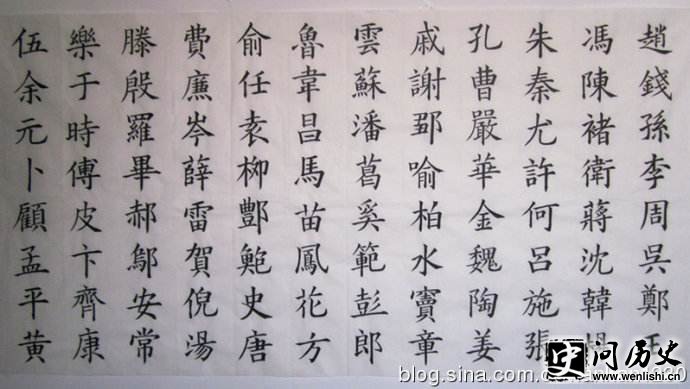 趙錢孫李周吳鄭王
馮陳褚衛蔣沈韓楊
朱秦尤許何呂施張
孔曹嚴華金魏陶姜
戚謝鄒喻柏水竇章
雲蘇潘葛奚範彭郎
魯韋昌馬苗鳳花方
俞任袁柳酆鮑史唐
費廉岑薛雷賀倪湯
滕殷羅畢郝鄔安常
樂于時傅皮卞齊康
伍余元卜顧孟平黄
史问历史
www.wenlishi.cn
blog.sina.com.c